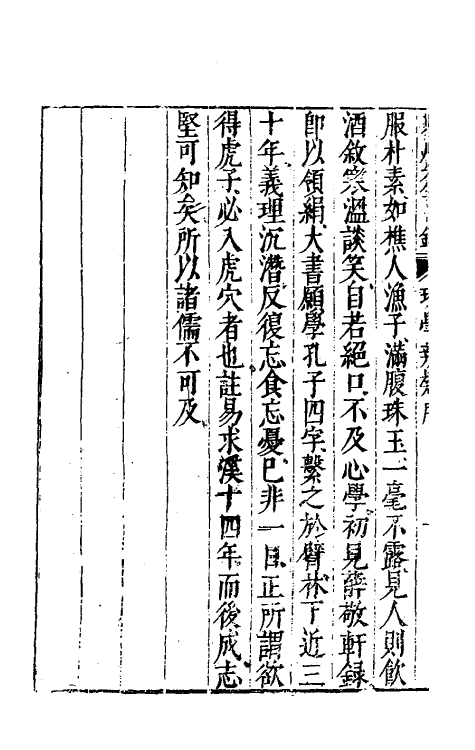 服朴素如樵人漁子滿腹珠玉一毫不露見人則飲
酒敘寒溫談笑自若絕口不及心學初見薛敬軒録
即以領絹大書願學孔子四字繫之於臂林下近三
十年義理沉潛反復忘食忘憂已非一日正所謂欲
得虎子必入虎穴者也註易求溪十四年而後成志
堅可知矣所以諸儒不可及